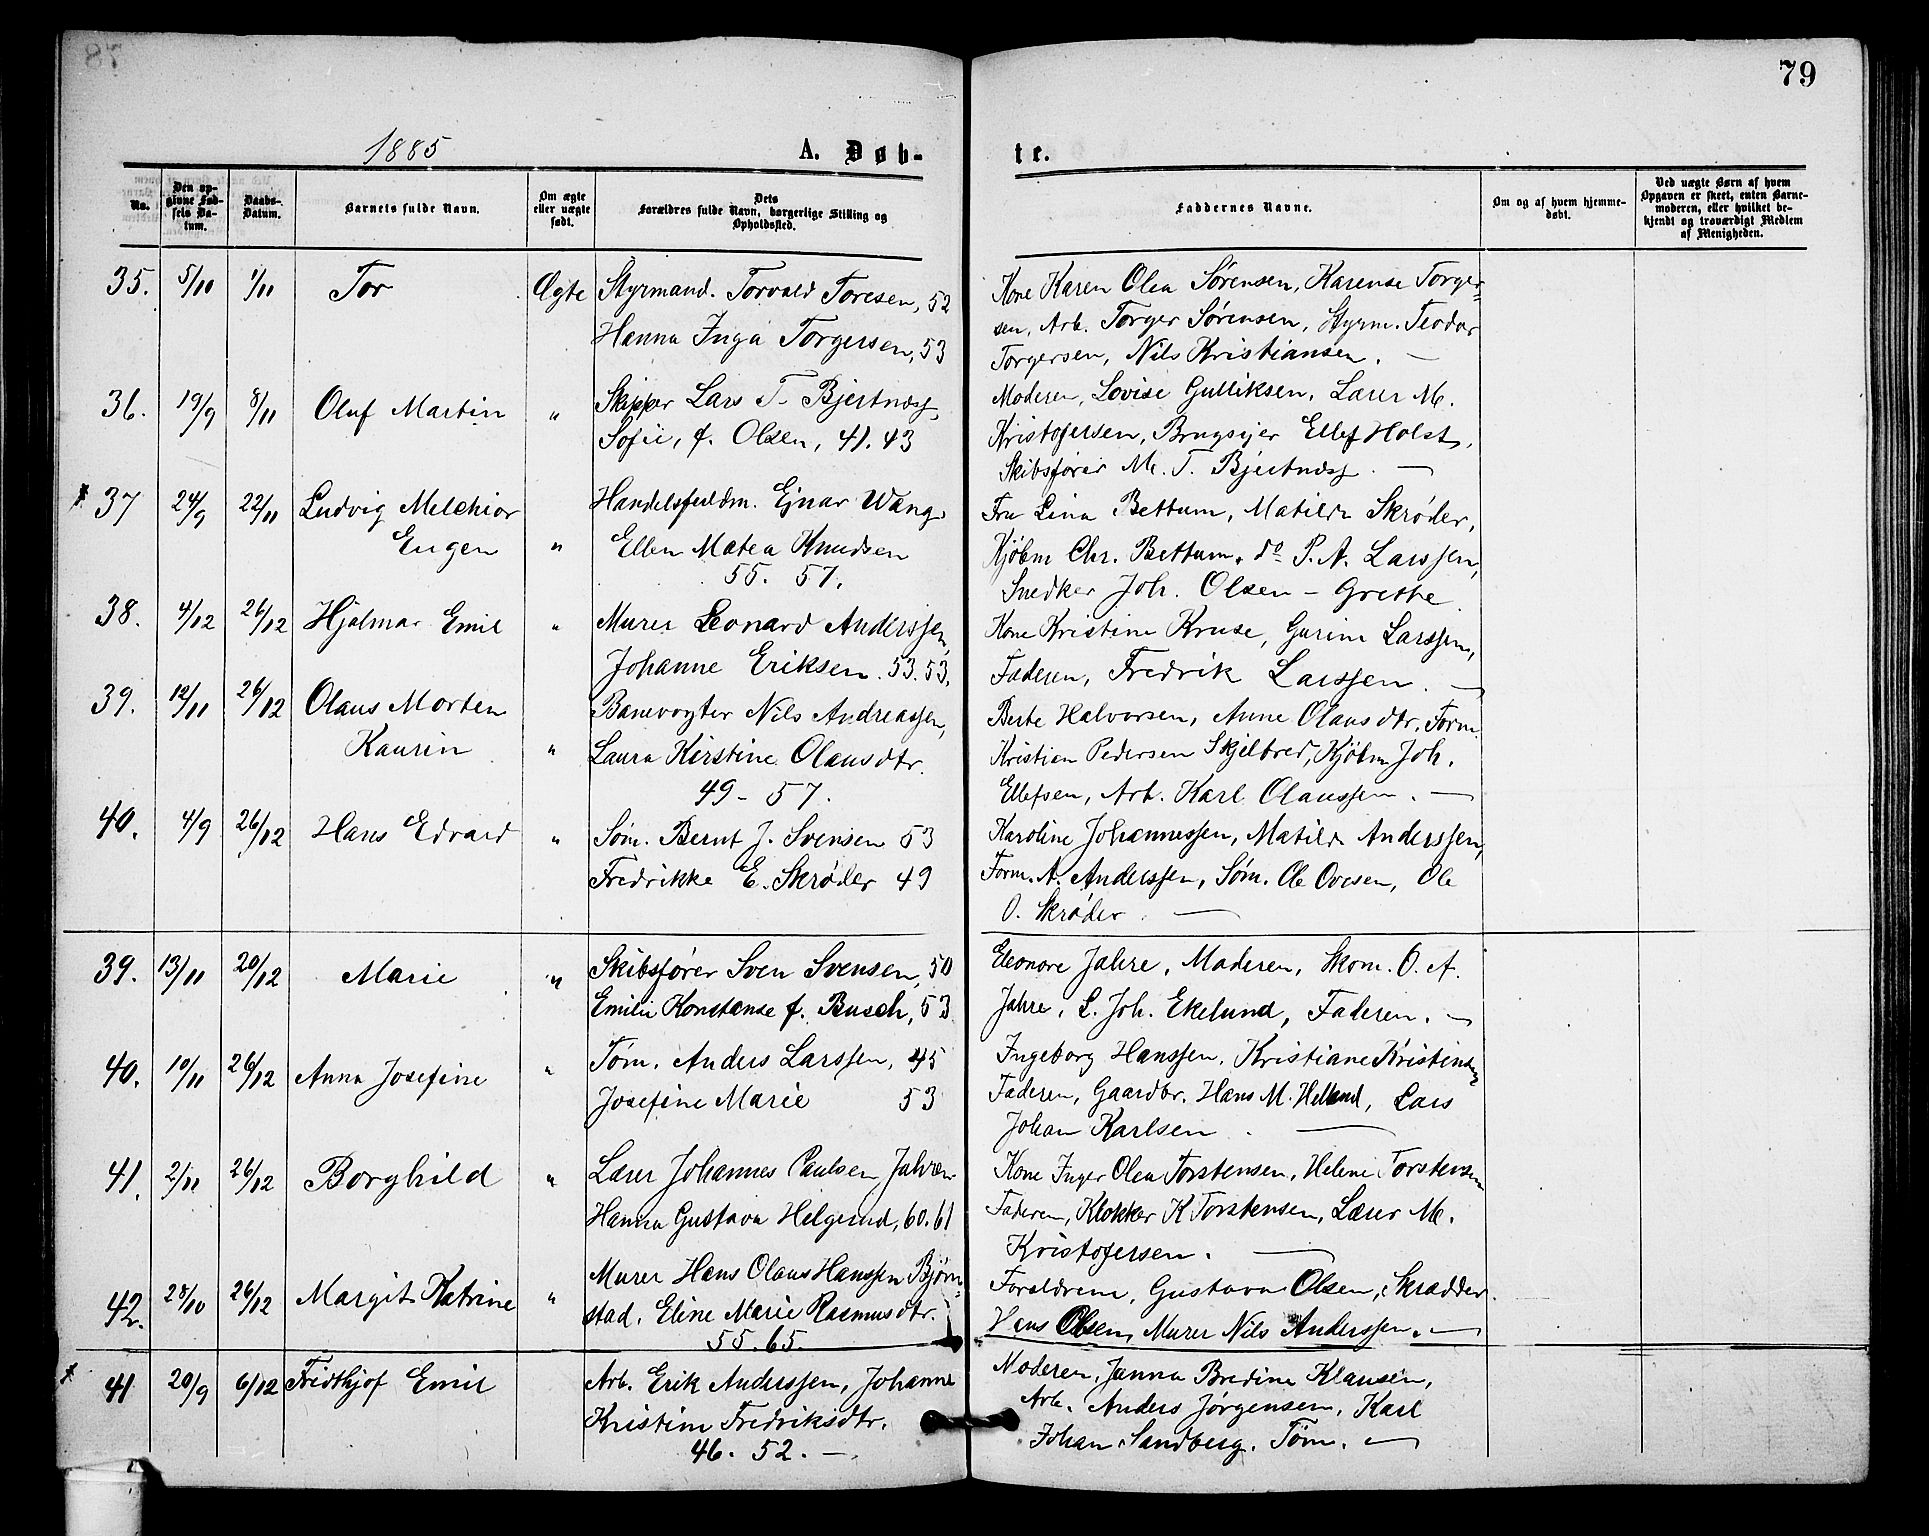 79
1885
A. Døb-
te.
No.
Den op-
givne Fød-
sels Da-
tum.
Daabs-
Datum.
Barnets fulde Navn.
Om ægte
eller uægte
født.
Dets
Forældres fulde Navn, borgerlige Stilling og
Opholdssted.
Faddernes Navne.
Om og af hvem hjemme-
døbt.
Ved uægte Børn af hvem
Opgaven er skeet, enten Barne-
moderen, eller hvilket be-
kjendt og troværdigt Medlem
af Menigheden.
35. 5/10 1/11 Tor Ægte Styrmand. Torvald Toresen, 52
Hanna Inga Torgersen, 53
Kone Karen Olea Sørensen, Karense Torger=
sen, Arb. Torger Sørensen, Styrm. Teodor
Torgersen, Nils Kristiansen. —
36. 19/9 8/11 Oluf Martin " Skipper Lars T. Bjertnæs,
Sofie, f. Olsen, 41. 43
Moderen, Lovise Gulliksen, Lærer M.
Kristofersen, Brugsejer Ellef Holst,
Skibsfører M. T. Bjertnæs. —
37 24/9 22/11 Ludvig Melchior
Eugen "
Handelsfuldm. Ejnar Wang,
Ellen Matea Knudsen
55. 57.
Fru Lina Bettum, Matilde Skrøder,
Kjøbm Chr. Bettum, do P. A. Larssen,
Snedker Joh. Olsen – Grethe.
38. 4/12 26/12 Hjalmar Emil " Murer Leonard Anderssen,
Johanne Eriksen. 53. 53,
Kone Kristine Kruse, Gurine Larssen,
Faderen, Fredrik Larssen. —
39. 12/11 26/12 Olaus Morten
Kaurin "
Banevogter Nils Andreassen,
Laura Kirstine Olausdtr.
49 - 57.
Berte Halvorsen, Anne Olausdtr, Form.
Kristian Pedersen Skjelbred, Kjøbm Joh.
Ellefsen, Arb. Karl Olaussen. —
40. 4/9 26/12 Hans Edvard " Søm. Bernt J. Svensen 53
Fredrikke E. Skrøder 49
Karoline Johannessen, Matilde Anderssen,
Form. A. Anderssen, Søm. Ole Ovesen, Ole
O. Skrøder. —
39. 13/11 20/12 Marie " Skibsfører Sven Svensen, 50
Emilie Konstanse f. Busch, 53
Eleonore Jahre, Moderen, Skom. O. A.
Jahre, L. Joh. Ekelund, Faderen. —
40. 10/11 26/12 Anna Josefine " Tøm. Anders Larssen, 45
Josefine Marie 53
Ingeborg Hanssen, Kristiane Kristinsen
Faderen, Gaardbr. Hans M. Helland, Lars
Johan Karlsen. —
41. 2/11 26/12 Borghild " Lærer Johannes Paulsen,
Hanna Gustava Helgerud, 60. 61
Kone Inger Olea Torstensen, Helene Torstensen
Faderen, Klokker K Torstensen, Lærer M.
Kristofersen. —
42. 28/10 26/12 Margit Katrine " Murer Hans Olaus Hanssen Bjørn=
stad, Eline Marie Rasmusdtr.
55. 65.
Forældrene, Gustava Olsen, Skrædder.
Hans Olsen, Murer Nils Anderssen. —
41 20/9 6/12 Fridthjof Emil Arb. Erik Anderssen, Johanne
Kristine Fredriksdtr.
46. 52. —
Moderen, Janna Bredine Klausen,
Arb. Anders Jørgensen, Karl
Johan Sandberg. Tøm. —